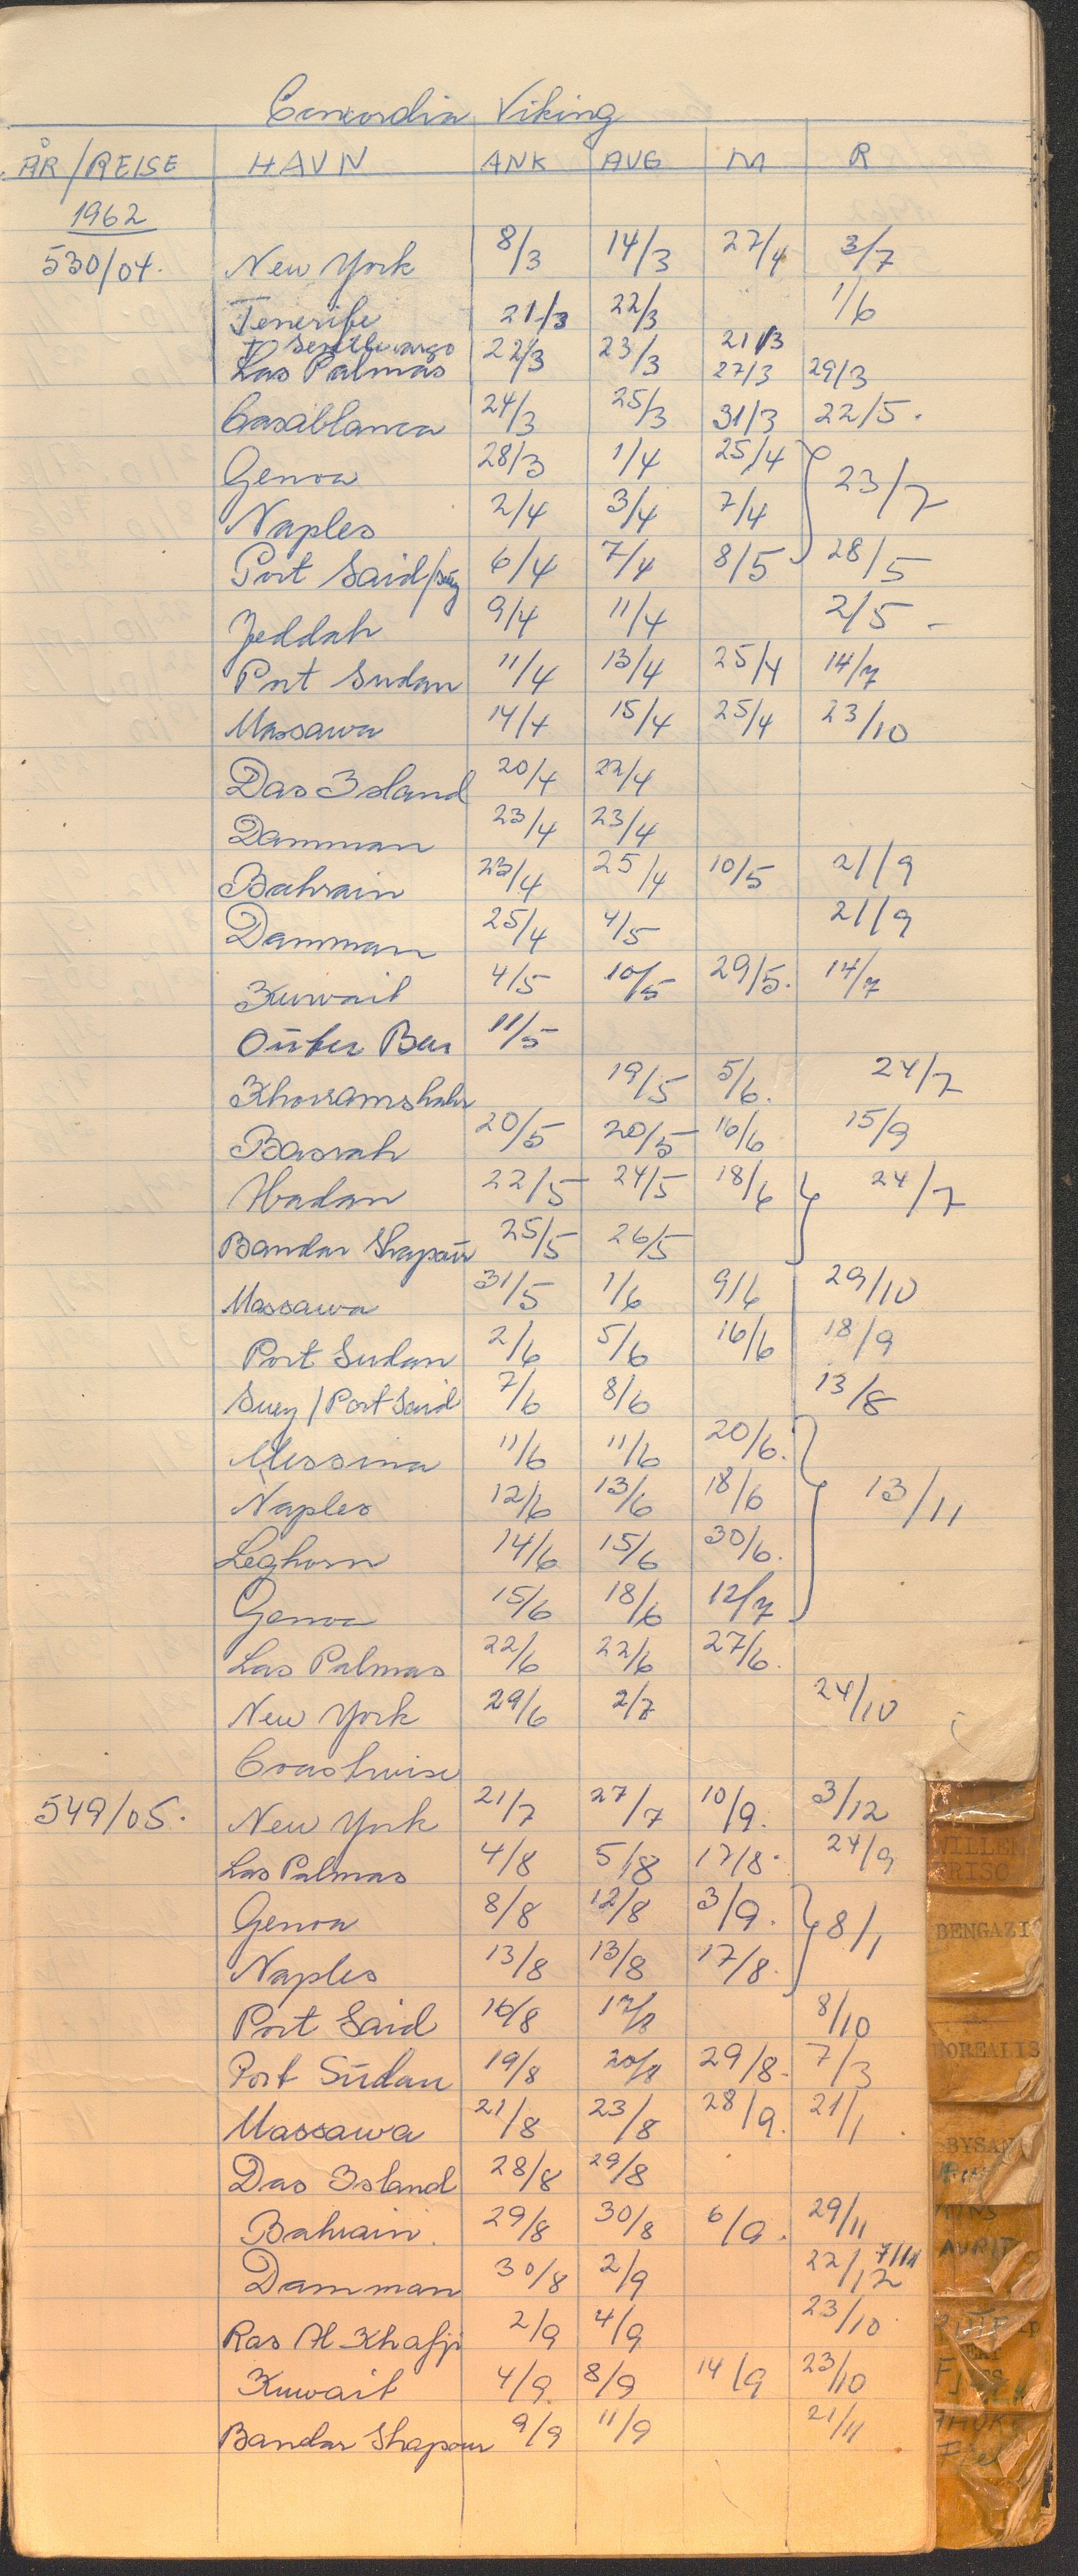 Concordia Viking
ÅR/REISE HAVN ANK AVG M R
1962
530/04. New York 8/3 14/3 27/4 3/7
Tenerife 21/3 22/3 1/6
21/3
Las Palmas 22/3 23/3 27/3 29/3
Casablanca 24/3 25/3 31/3 22/5.
Genoa 28/3 1/4 25/4 } 23/7
Naples 2/4 3/4 7/4
Port Said/Suez 6/4 7/4 8/5 28/5
Jeddah 9/4 11/4 2/5 -
Port Sudan 11/4 13/4 25/4 14/7
Massawa 14/4 15/4 25/4 23/10
Das Island 20/4 22/4
Damman 23/4 23/4
Bahrain 23/4 25/4 10/5 21/9
Damman 25/4 4/5 21/9
Kuwait 4/5 10/5 29/5. 14/7
Outer Bar 11/5
Khorramshahr 19/5 5/6. 24/7
Basrah 20/5 20/5 16/6 15/9
Abadan 22/5 24/5 18/6 } 24/7
Bandar Shapour 25/5 26/5
Massawa 31/5 1/6 9/6 29/10
Port Sudan 2/6 5/6 16/6 18/9
Suez/Port Said 7/6 8/6 13/8
Messina 11/6 11/6 20/6. }
Naples 12/6 13/6 18/6 13/11
Leghorn 14/6 15/6 30/6.
Genoa 15/6 18/6 12/7
Las Palmas 22/6 22/6 27/6.
New York 29/6 2/7 24/10
Coastwise
549/05. New York 21/7 27/7 10/9. 3/12
Las Palmas 4/8 5/8 17/8. 24/9
Genoa 8/8 12/8 3/9. } 8/1
Naples 13/8 13/8 17/8.
Port Said 16/8 17/8 8/10
Port Sudan 19/8 20/8 29/8. 7/3
Massawa 21/8 23/8 28/9. 21/1
Das Island 28/8 29/8
Bahrain. 29/8 30/8 6/9. 29/11
Damman 30/8 2/9 22/12 7/11
Ras Al Khafji 2/9 4/9 23/10
Kuwait 4/9 8/9 14/9 23/10
Bandar Shapour 9/9 11/9 21/11
WILLEM
RISC
BENGAZI
BOREALIS
BYSAN